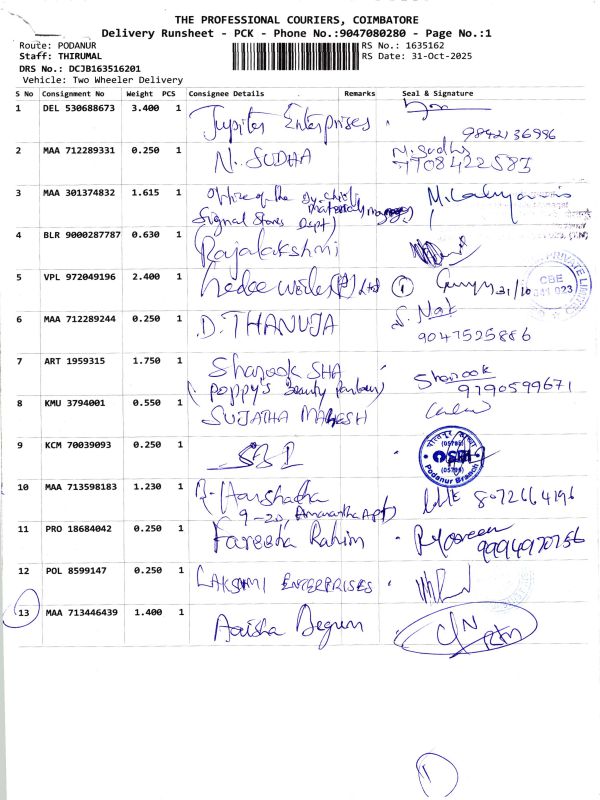 THE PROFESSIONAL COURIERS, COIMBATORE
Delivery Runsheet - PCK - Phone No.:9047080280 - Page No.:1
Route: PODANUR RS No.: 1635162
Staff: THIRUMAL RS Date: 31-Oct-2025
DRS No.: DCJB163516201
Vehicle: Two Wheeler Delivery
S No Consignment No Weight PCS Consignee Details Remarks Seal & Signature
1 DEL 530688673 3.400 1 Jupiter Enterprises
9842136996
2 MAA 712289331 0.250 1 N. SUDHA N. Sudha
7708422583
3 MAA 301874832 1.615 1 Office of the Dy. Chief
Material Manager
Signal Stores Dept)
4 BLR 9000287787 0.630 1 Rajalakshmi
5 VPL 972049196 2.400 1 (P) Ltd 1 31/10
CBE
641 023
6 MAA 712289244 0.250 1 D. THANUJA
9047525886
7 ART 1959315 1.750 1 Sharook SHA Sharook
(Poppy's Beauty Parlour) 9790599671
8 KMU 3794001 0.550 1 SUJATHA MAHESH
9 KCM 70039093 0.250 1 SBI
(05798)
SBI
Podanur Branch
10 MAA 713598183 1.230 1 R. Harshadha 8072664196
9-20, Amarantha Apt)
11 PRO 18684042 0.250 1 Fareetha Rahim
9994970756
12 POL 8599147 0.250 1 LAKSHMI ENTERPRISES
13 MAA 713446439 1.400 1 Aaisha Begum
1